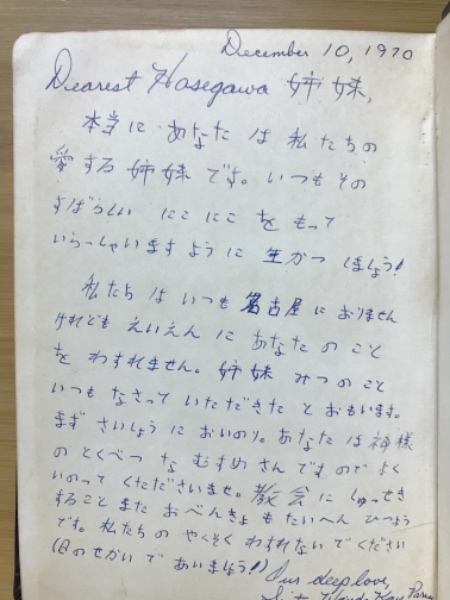 December 10, 1970
Dearest Hasegawa 姉妹,
本当に あなた は 私たちの
愛する 姉妹 です。いつも その
すばらしい にこにこ を もって
いらっしゃいます ように 生かつ しましょう!
私たち は いつも 名古屋 に おりません
けれども えいえん に あなた の こと
を わすれません。姉妹 みつの こと
いつも なさって いただきた と おもいます。
まず さいしょう に おいのり。あなた は 神様
の とくべつ な むすめ さん ですので よく
いのって くただ さいませ。教会 に しゅっせき
すること また おべんきょ も たいへん ひつよう
です。私たちの やくそく わすれないで ください
(日のせかい で あいましょう!) Our deep love,